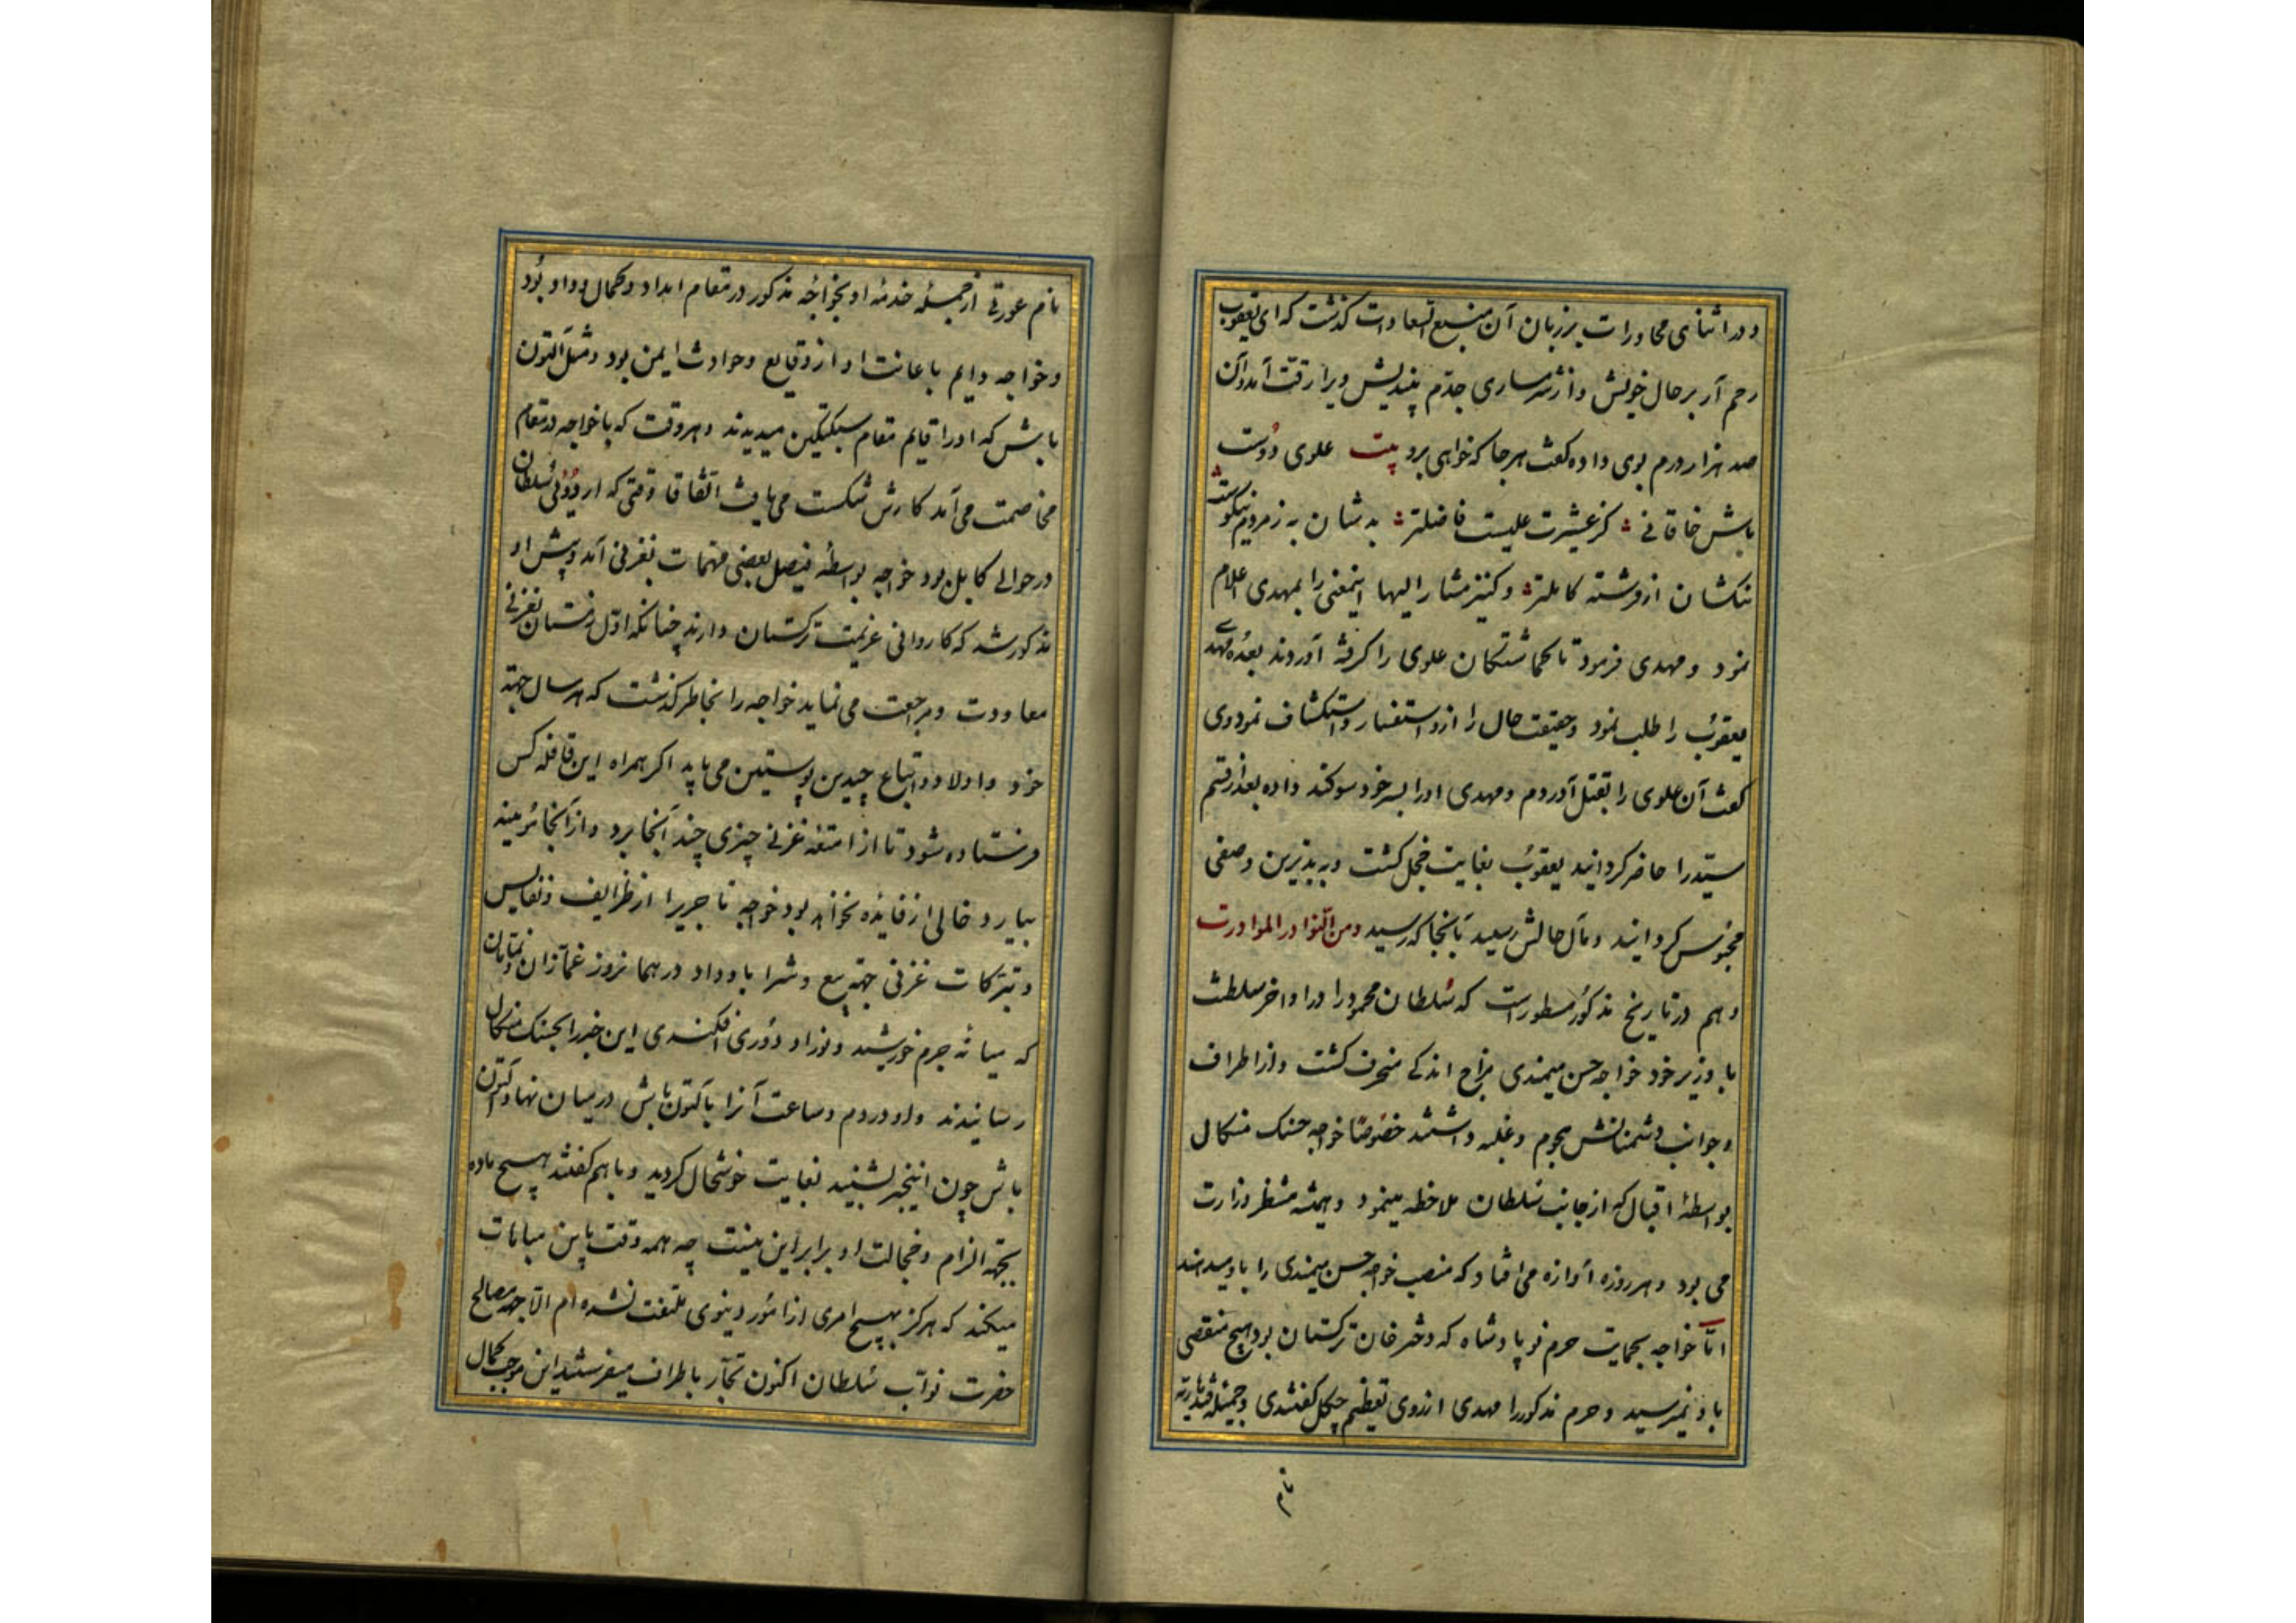 و در اثنای محاورات بر زبان آن منبع السعادات کذشت که ای یعقوب
رحم آر بر حال خویش و از شرمساری جدّم بیندیش ویرا رقت آمد و آن
صد هزار درم بوی داده کفت هر جا که خواهی برو بیت علوی دوست
باش خاقانی کز عشیرت علیست فاضلتر بد شان به ز مردم نیکوست
نیکشان از فرشته کاملتر و کنیز مشار الیها اینمعنی را بمهدی اعلام
نمود و مهدی فرمود تا کماشتکان علوی را کرفته آوردند بعده مهدی
یعقوب را طلب نمود و حقیقت حال را ازو استفسار و استکشاف نمود وی
کفت آن علوی را بقتل آوردم و مهدی او را بسر خود سوکند داده بعد از قسم
سیّد را حاضر کردانید یعقوب بغایت خجل کشت و بدین وصفی
محبوس کردانید و مآل حالش رسید بآنجا که رسید و من النوادر الموادرت
و هم در تاریخ مذکور مسطور است که سلطان محمود را در اواخر سلطنت
با وزیر خود خواجه حسن میمندی مزاج اندکی منحرف کشت و از اطراف
و جوانب دشمنانش هجوم و غلبه داشتند خصوصًا خواجه حسنک منکال
بواسطهٔ اقبال که از جانب سلطان ملاحظه مینمود و همیشه منتظر وزارت
می بود و هر روزه آوازه می افتاد که منصب خواجه حسن میمندی را باو میدهند
امّا خواجه بحمایت حرم نو پادشاه که دختر خان ترکستان بود هیچ منقصی
باو نمیرسید و حرم مذکور را مهدی از روی تعظیم چکل کفتندی و جمیله قندهاریه
نام
نام عورتی از جملهٔ خدمهٔ او بخواجهٔ مذکور در مقام امداد و کمال وداد بود
و خواجه دایم باعانت او از وقایع و حوادث ایمن بود و مثل آلتون
تاش که او را قایم مقام سبکتکین میدیدند و هر وقت که با خواجه در مقام
مخاصمت می آمد کارش شکست می یافت اتفاقا وقتی که اردوی سلطان
در حوالی کابل بود خواجه بواسطهٔ فیصل بعضی مهمات بغزنی آمد و پیش او
مذکور شد که کاروانی عزیمت ترکستان دارند چنانکه اوّل زمستان بغزنی
معاودت و مراجعت می نماید خواجه را بخاطر کذشت که هر سال جهة
خود و اولاد و اتباع چندین پوستین می باید اکر همراه این قافله کس
فرستاده شود تا از امتعهٔ غزنی چیزی چند آنجا برد و از آنجا مویینه
بیارد خالی از فایده نخواهد بود خواجه تاجریرا از ظرایف و نفایس
و تبرکات غزنی جهة بیع و شرا باو داد در همان روز غمازان و نمامان
که میانهٔ جرم خورشید و نور او دوری افکندی این خبر را بحسنک منکال
رسانیدند و او در دم و ساعت آنرا بآلتون تاش در میان نهاد و آلتون
تاش چون اینخبر بشنید بغایت خوشحال کردید و با هم کفتند هیچ ماده
بجهة الزام و خجالت او برابر این نیست چه همه وقت باین مباهات
میکند که هرکز بهیچ امری از امور دنیوی ملتفت نشده ام الّا جهة مصالح
حضرت نوّاب سلطان اکنون تجّار باطراف میفرستد این موجب کمال